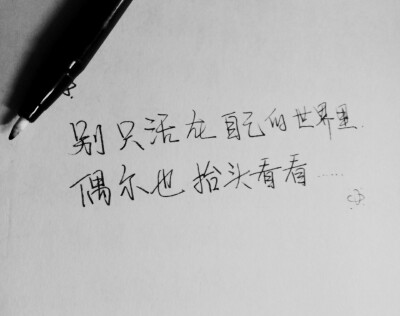 别只活在自己的世界里.
偶尔也抬头看看……